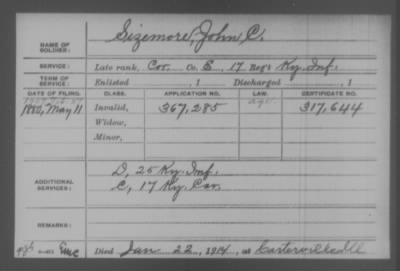 Sizemore, John C.
NAME OF SOLDIER:
SERVICE: Late rank, Cor. Co. E, 17 Reg't Ky. Inf.
TERM OF SERVICE: Enlisted , 1 Discharged , 1
DATE OF FILING. CLASS. APPLICATION NO. LAW. CERTIFICATE NO.
1880, May 11 Invalid, 367,285 317,644
Widow,
Minor,
ADDITIONAL SERVICES: D, 25 Ky. Inf.
C, 17 Ky. Cav.
REMARKS:
Died Jan 22, 1914, at Carterville Ill